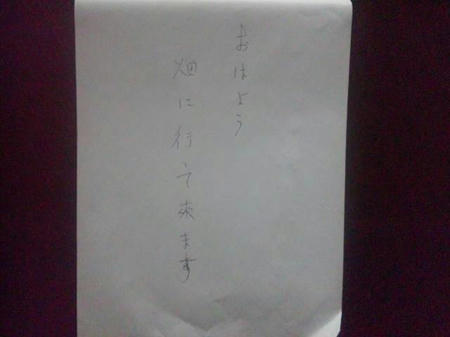 おはよう
畑に行って来ます